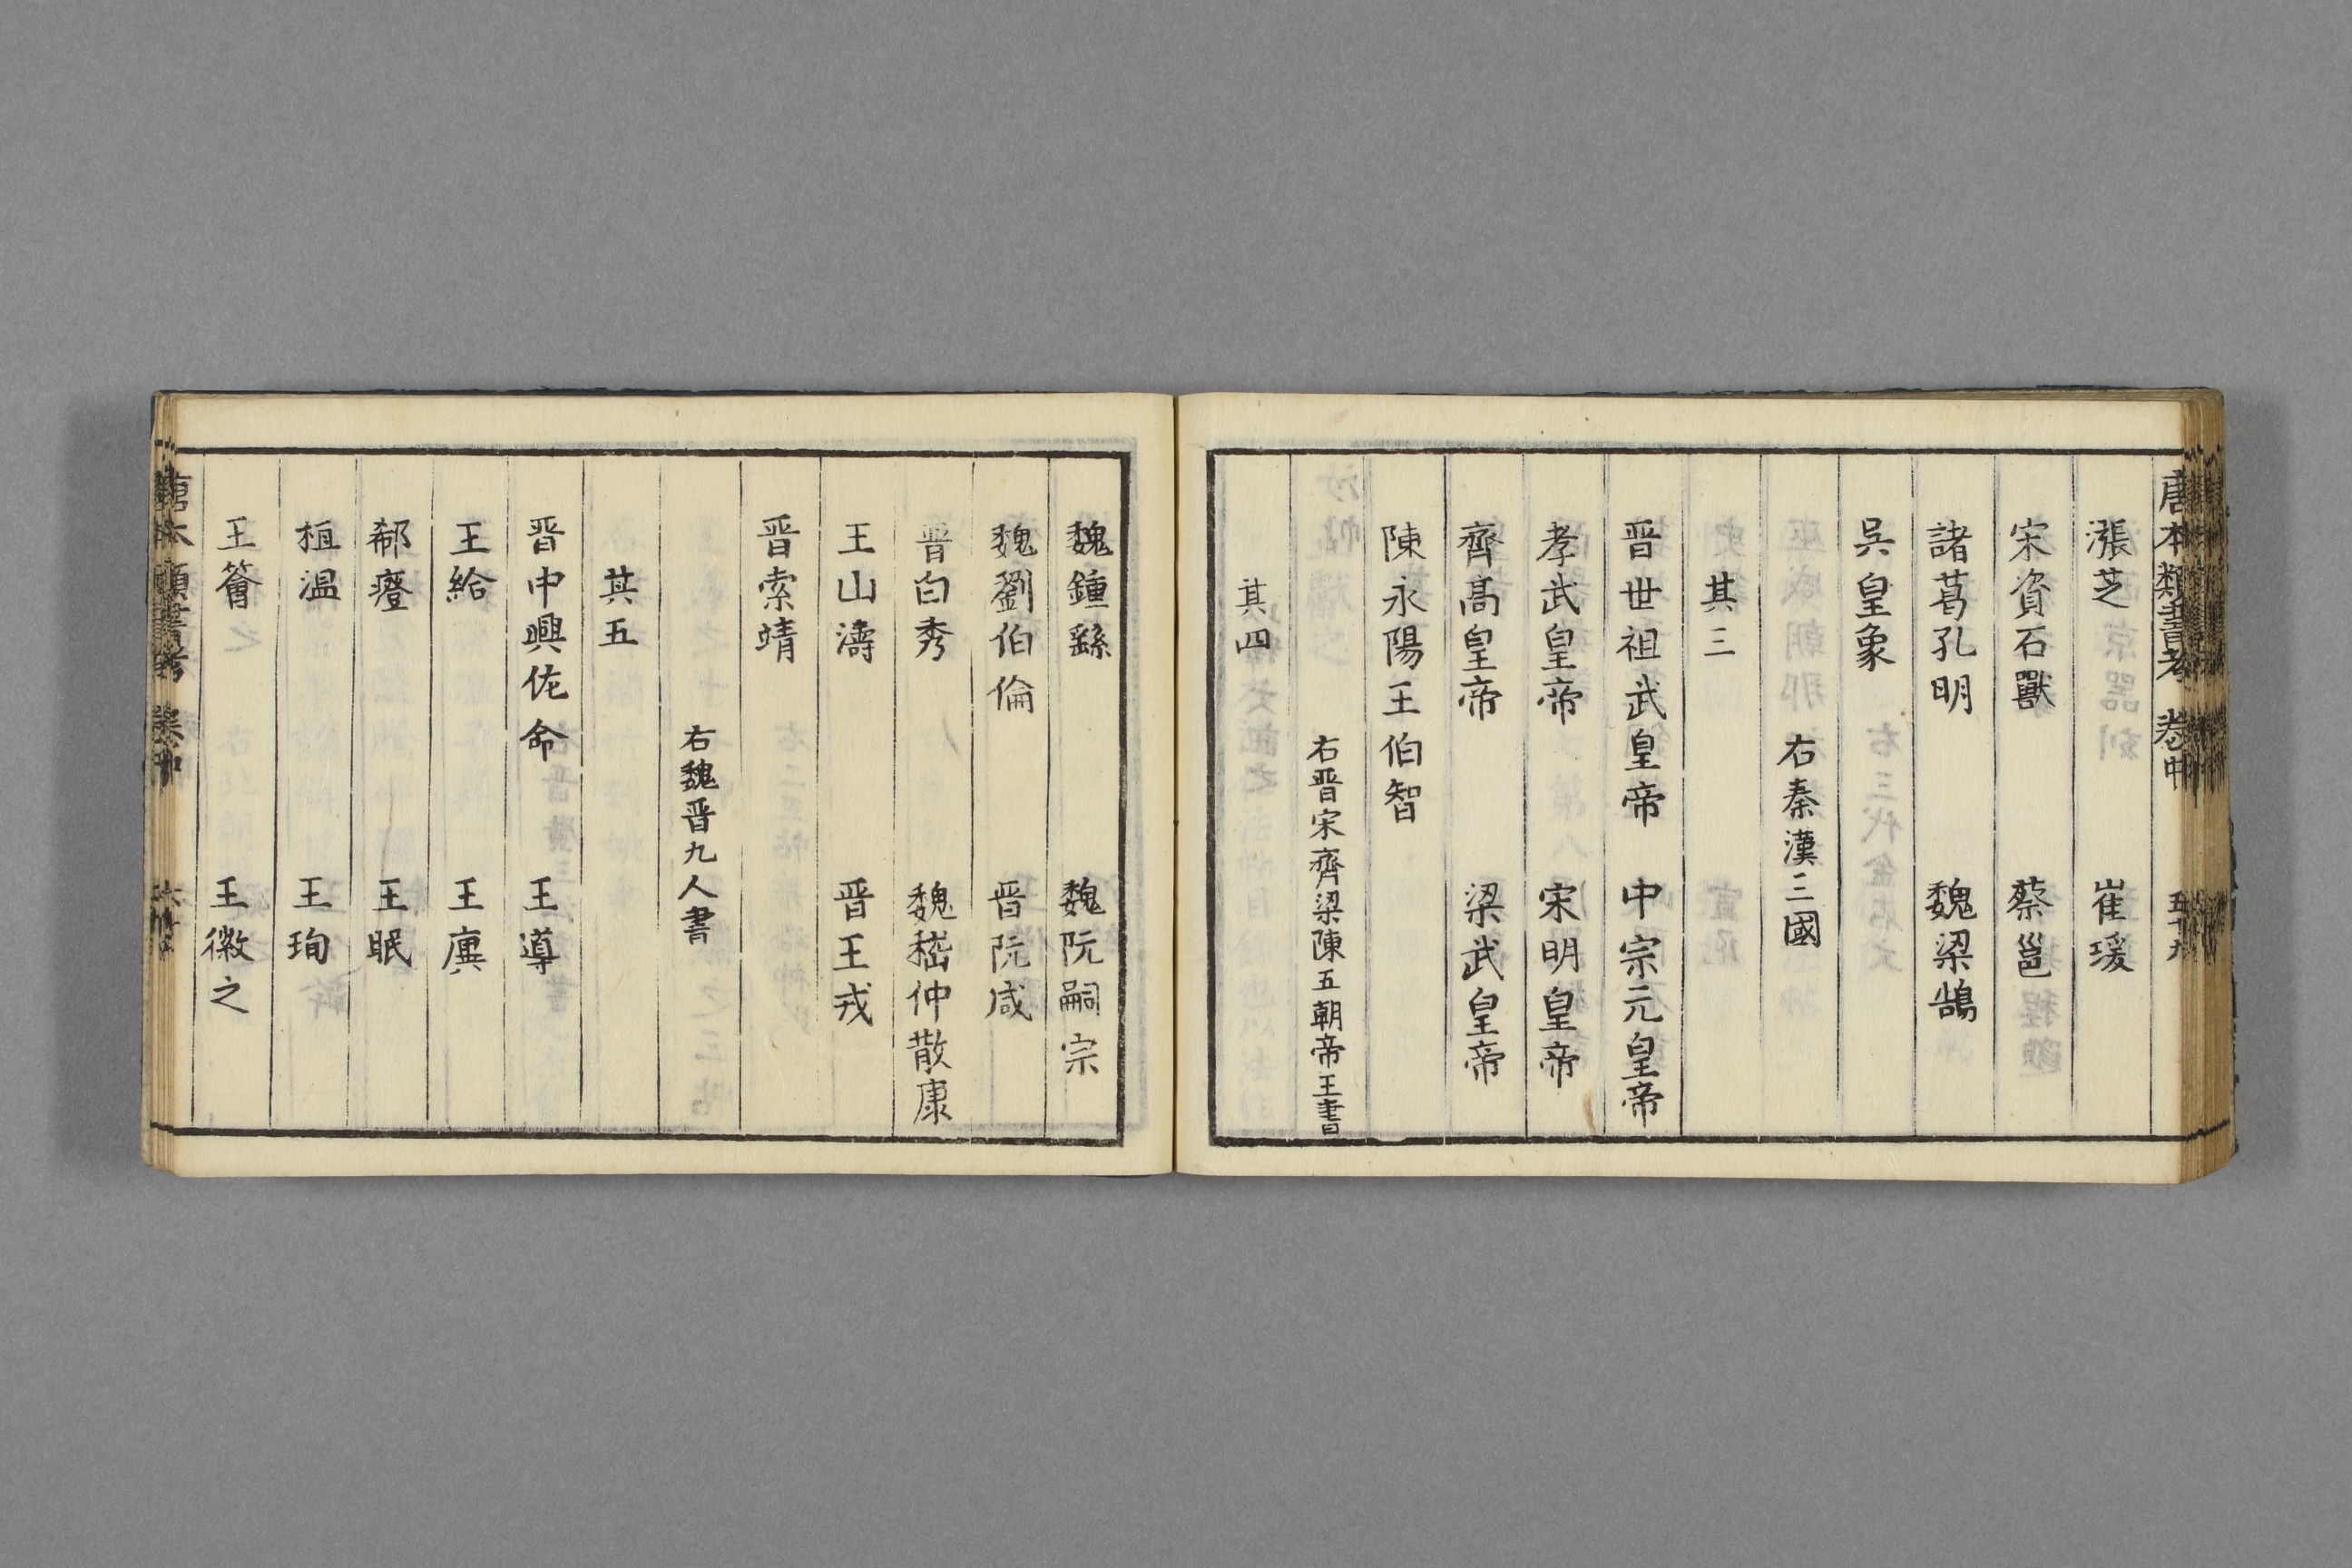 唐本類書考 卷中 五十九
漲芝 崔瑗
宋資石獸 蔡邕
諸葛孔明 魏梁鵠
吳皇象
右秦漢三國
其三
晋世祖武皇帝 中宗元皇帝
孝武皇帝 宋明皇帝
齊髙皇帝 梁武皇帝
陳永陽王伯智
右晋宋齊梁陳五朝帝王書
其四
魏鍾繇 魏阮嗣宗
魏劉伯倫 晋阮咸
晋白秀 魏嵇仲散康
王山濤 晋王戎
晋索靖
右魏晋九人書
其五
晋中興佐命 王導
王給 王廙
郗瘞 王眠
桓温 王珣
王薈 王徽之
唐本類書考 卷中